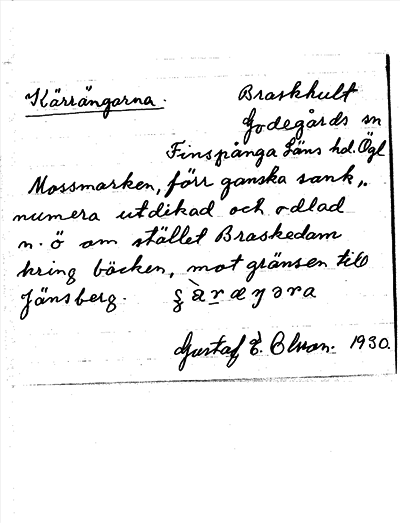 Kärrängarna. Braskhult
Godegårds sn
Finspånga Läns hd. Ögl
Mossmarken, förr ganska sank,
numera utdikad och odlad
n. ö om stället Braskedam
kring bäcken, mot gränsen till
Jänsberg.
Gustaf E. Olsson. 1930.